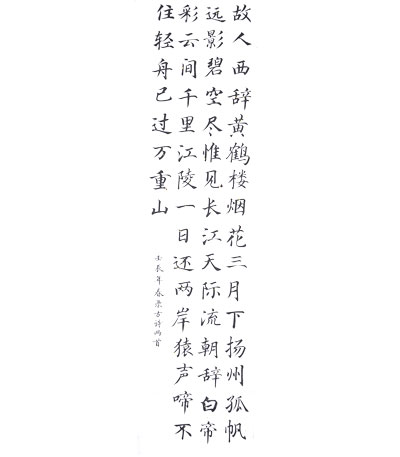 故人西辞黄鹤楼烟花三月下扬州孤帆
远影碧空尽惟见长江天际流朝辞白帝
彩云间千里江陵一日还两岸猿声啼不
住轻舟已过万重山
壬辰年春录古诗两首